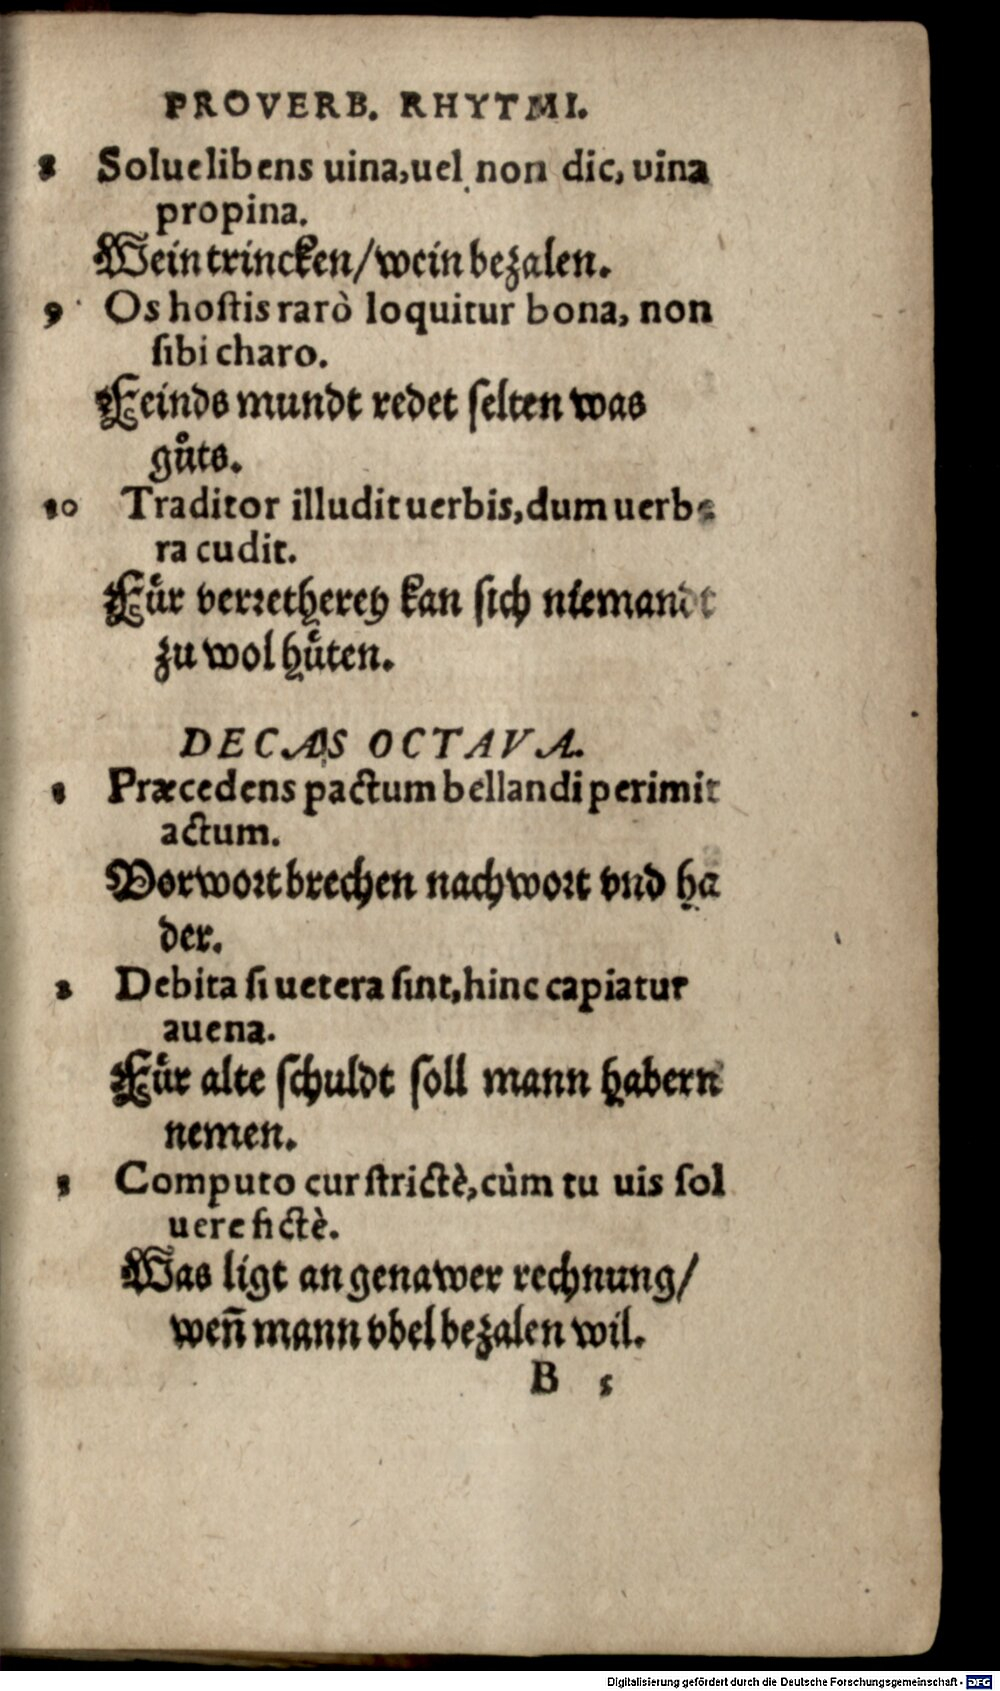 PROVERB. RHYTMI.
8 Solue libens uina, uel non dic, uina
propina.
Wein trincken/ wein bezalen.
9 Os hostis rarò loquitur bona, non
sibi charo.
Feinds mundt redet selten was
gůts.
10 Traditor illudit uerbis, dum uerbe
ra cudit.
Fůr verretherey kan sich niemandt
zu wol hůten.
DECAS OCTAVA.
1 Præcedens pactum bellandi perimit
actum.
Vorwort brechen nachwort vnd ha
der.
2 Debita si uetera sint, hinc capiatur
auena.
Fůr alte schuldt soll mann habern
nemen.
3 Computo cur strictè, cùm tu uis sol
uere fictè.
Was ligt an genawer rechnung/
weñ mann vbel bezalen wil.
B 5
Digitalisierung gefördert durch die Deutsche Forschungsgemeinschaft - DFG